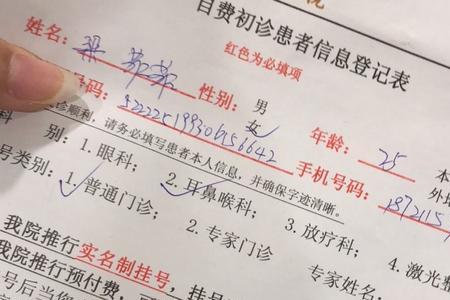 院
自费初诊患者信息登记表
红色为必填项
姓名： 梁 性别： 男
女 年龄： 25 本
号码： 422225199306156642 手机号码： 1872115
诊顺利，请务必填写患者本人信息，并确保字迹清晰。 外埠
科 别： 1. 眼科； 2. 耳鼻喉科； 3. 放疗科； 4. 激光整
号类别： 1. 普通门诊； 2. 专家门诊 专家姓名
我院推行实名制挂号，挂号
我院推行预付费，
号后当